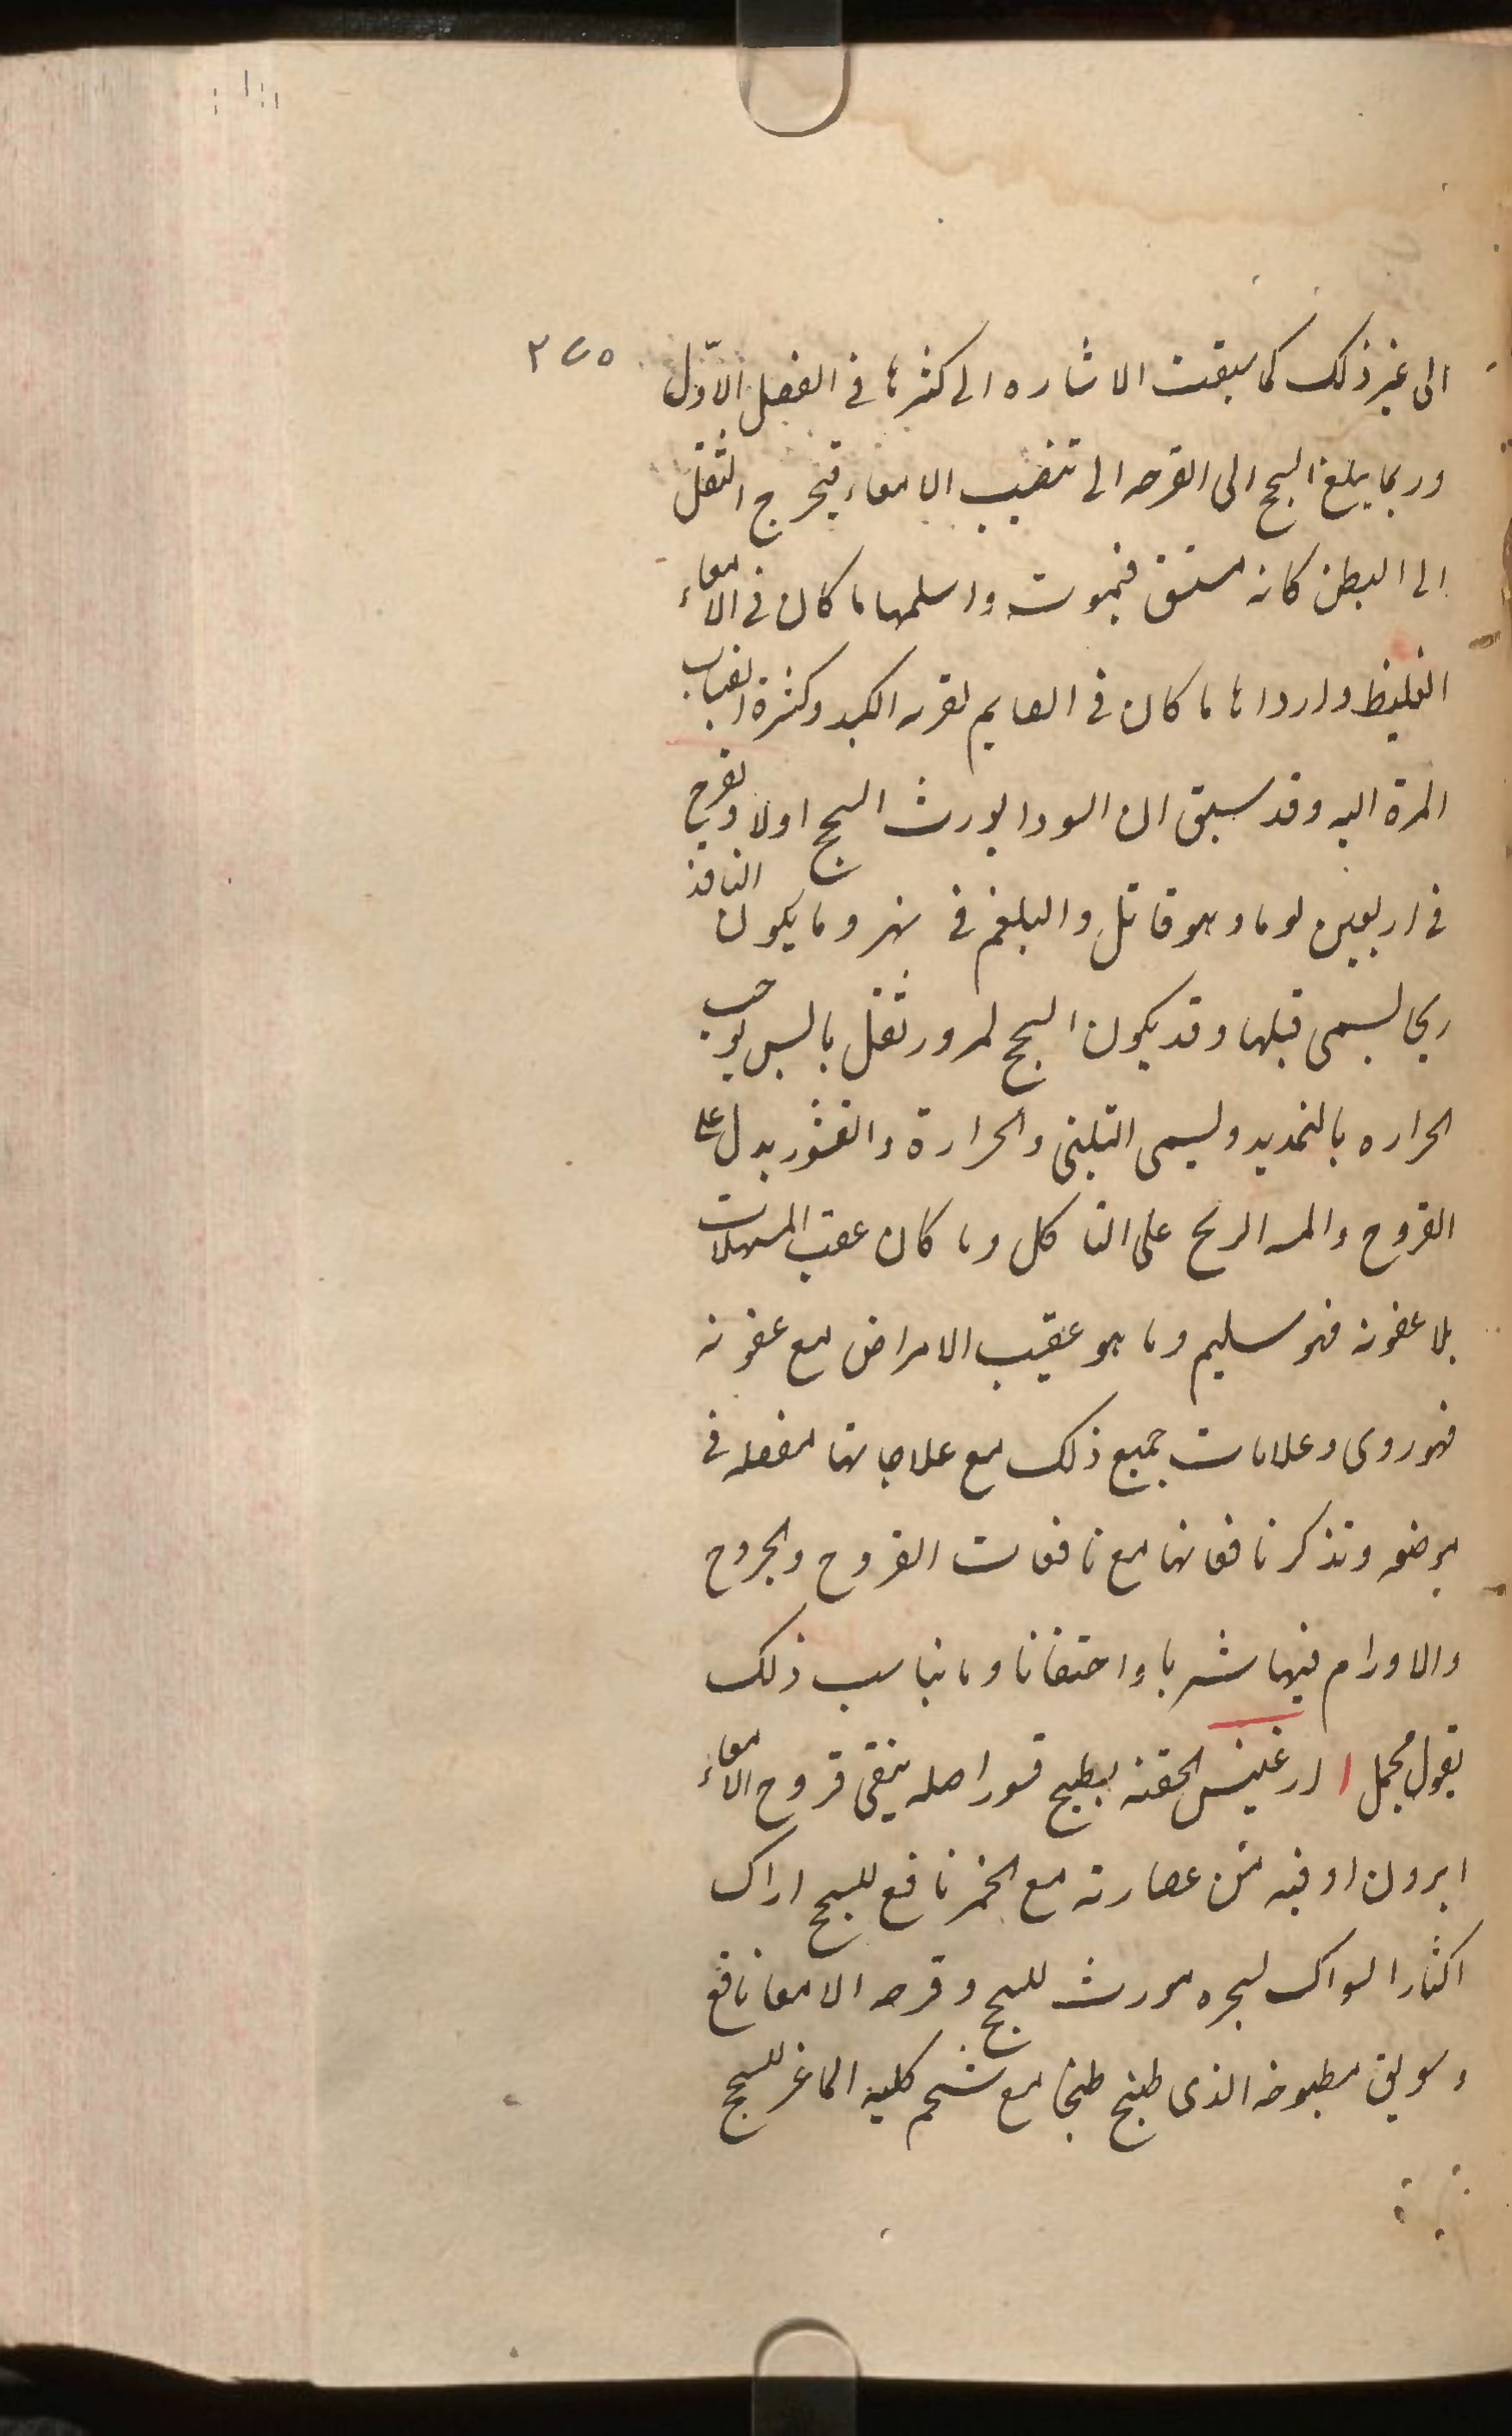 ٢٧٥
الى غير ذلك كما سبقت الاشاره الى كثرها فى الفصل الاوّل
وربما يبلغ السحج الى القرحه الى تنقيب الامعاء فيخرج الثفل
الى البطن كانه مستسق فيموت واسلمها ما كان فى الامعاء
الغليظ واردا ها ما كان فى الصايم لقربه الكبد وكثرة انصباب
المرة اليه وقد سبق ان السودا يورث السحج اولا وتقرح
فى اربعين يوما وهو قاتل والبلغم فى شهر وما يكون النافذ
قبلها وقد يكون السحج لمرور ثفل يابس يوجب
الحراره بالتمديد وليسمى والحرارة والقشور يدل على
القروح والمده على التاكل وما كان عقب المسهلات
بلا عفونه فهو سليم وما هو عقيب الامراض مع عفونه
فهو روى وعلامات جميع ذلك مع علاجاتها مفصله فى
موضعه ونذكر نافعاتها مع نافعات القروح والجروح
والاورام فيها شربا واحتقانا وما يناسب ذلك
بقول مجمل ا الحقنه بطبيخ قشور اصله ينقى قروح الامعاء
ابرون اوقيه من عصارته مع الخمر نافع للسحج اراك
اكثار السواك لسجره مورث للسحج وقرحه الامعا نافع
وسويق مطبوخه الذى طبخ طبخا مع شحم كلية الماعز للسحج